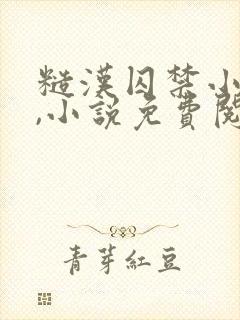 糙漢囚禁小
,小說免費閱
青芽紅豆